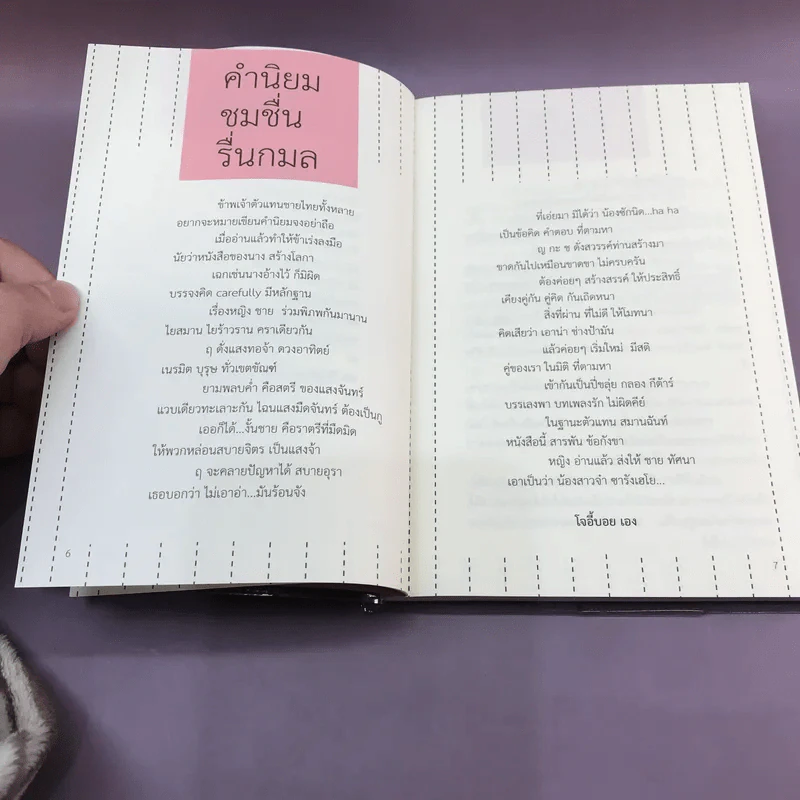 คำนิยม
ชมชื่น
รื่นกมล
ข้าพเจ้าตัวแทนชายไทยทั้งหลาย
อยากจะหมายเขียนคำนิยมจงอย่าถือ
เมื่ออ่านแล้วทำให้ข้าเร่งลงมือ
นัยว่าหนังสือของนาง สร้างโลกา
เฉกเช่นนางอ้างไว้ ก็มิผิด
บรรจงคิด carefully มีหลักฐาน
เรื่องหญิง ชาย ร่วมพิภพกันมานาน
ใยสมาน ใยร้าวราน คราเดียวกัน
ฤ ดั่งแสงทองจ้า ดวงอาทิตย์
เนรมิต บุรุษ ทั่วเขตขัณฑ์
ยามพลบค่ำ คือสตรี ของแสงจันทร์
แวบเดียวทะเลาะกัน ไฉนแสงมืดจันทร์ ต้องเป็นกู
เออก็ได้...งั้นชาย คือราตรีที่มืดมิด
ให้พวกหล่อนสบายจิตร เป็นแสงจ้า
ฤ จะคลายปัญหาได้ สบายอุรา
เธอบอกว่า ไม่เอาอ่า...มันร้อนจัง
6
ที่เอ่ยมา มิได้ว่า น้องซักนิด...ha ha
เป็นข้อคิด คำตอบ ที่ตามหา
ญ กะ ช ดั่งสวรรค์ท่านสร้างมา
ขาดกันไปเหมือนขาดขา ไม่ครบครัน
ต้องค่อยๆ สร้างสรรค์ ให้ประสิทธิ์
เคียงคู่กัน คู่คิด กันเถิดหนา
สิ่งที่ผ่าน ที่ไม่ดี ให้โมทนา
คิดเสียว่า เอาน่า ช่างป้ามัน
แล้วค่อยๆ เริ่มใหม่ มีสติ
คู่ของเรา ในมิติ ที่ตามหา
เข้ากันเป็นปี่ขลุ่ย กลอง กีต้าร์
บรรเลงพา บทเพลงรัก ไม่ผิดคีย์
ในฐานะตัวแทน สมานฉันท์
หนังสือนี้ สารพัน ข้อกังขา
หญิง อ่านแล้ว ส่งให้ ชาย ทัศนา
เอาเป็นว่า น้องสาวจ๋า ซารังเฮโย...
โจอี้บอย เอง
7